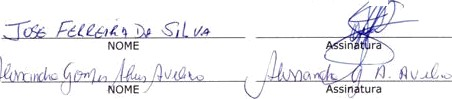 JOSE FERREIRA DA SILVA
NOME Assinatura
Alessandra Gomes Alves Avelino Alessandra G A. Avelino
NOME Assinatura